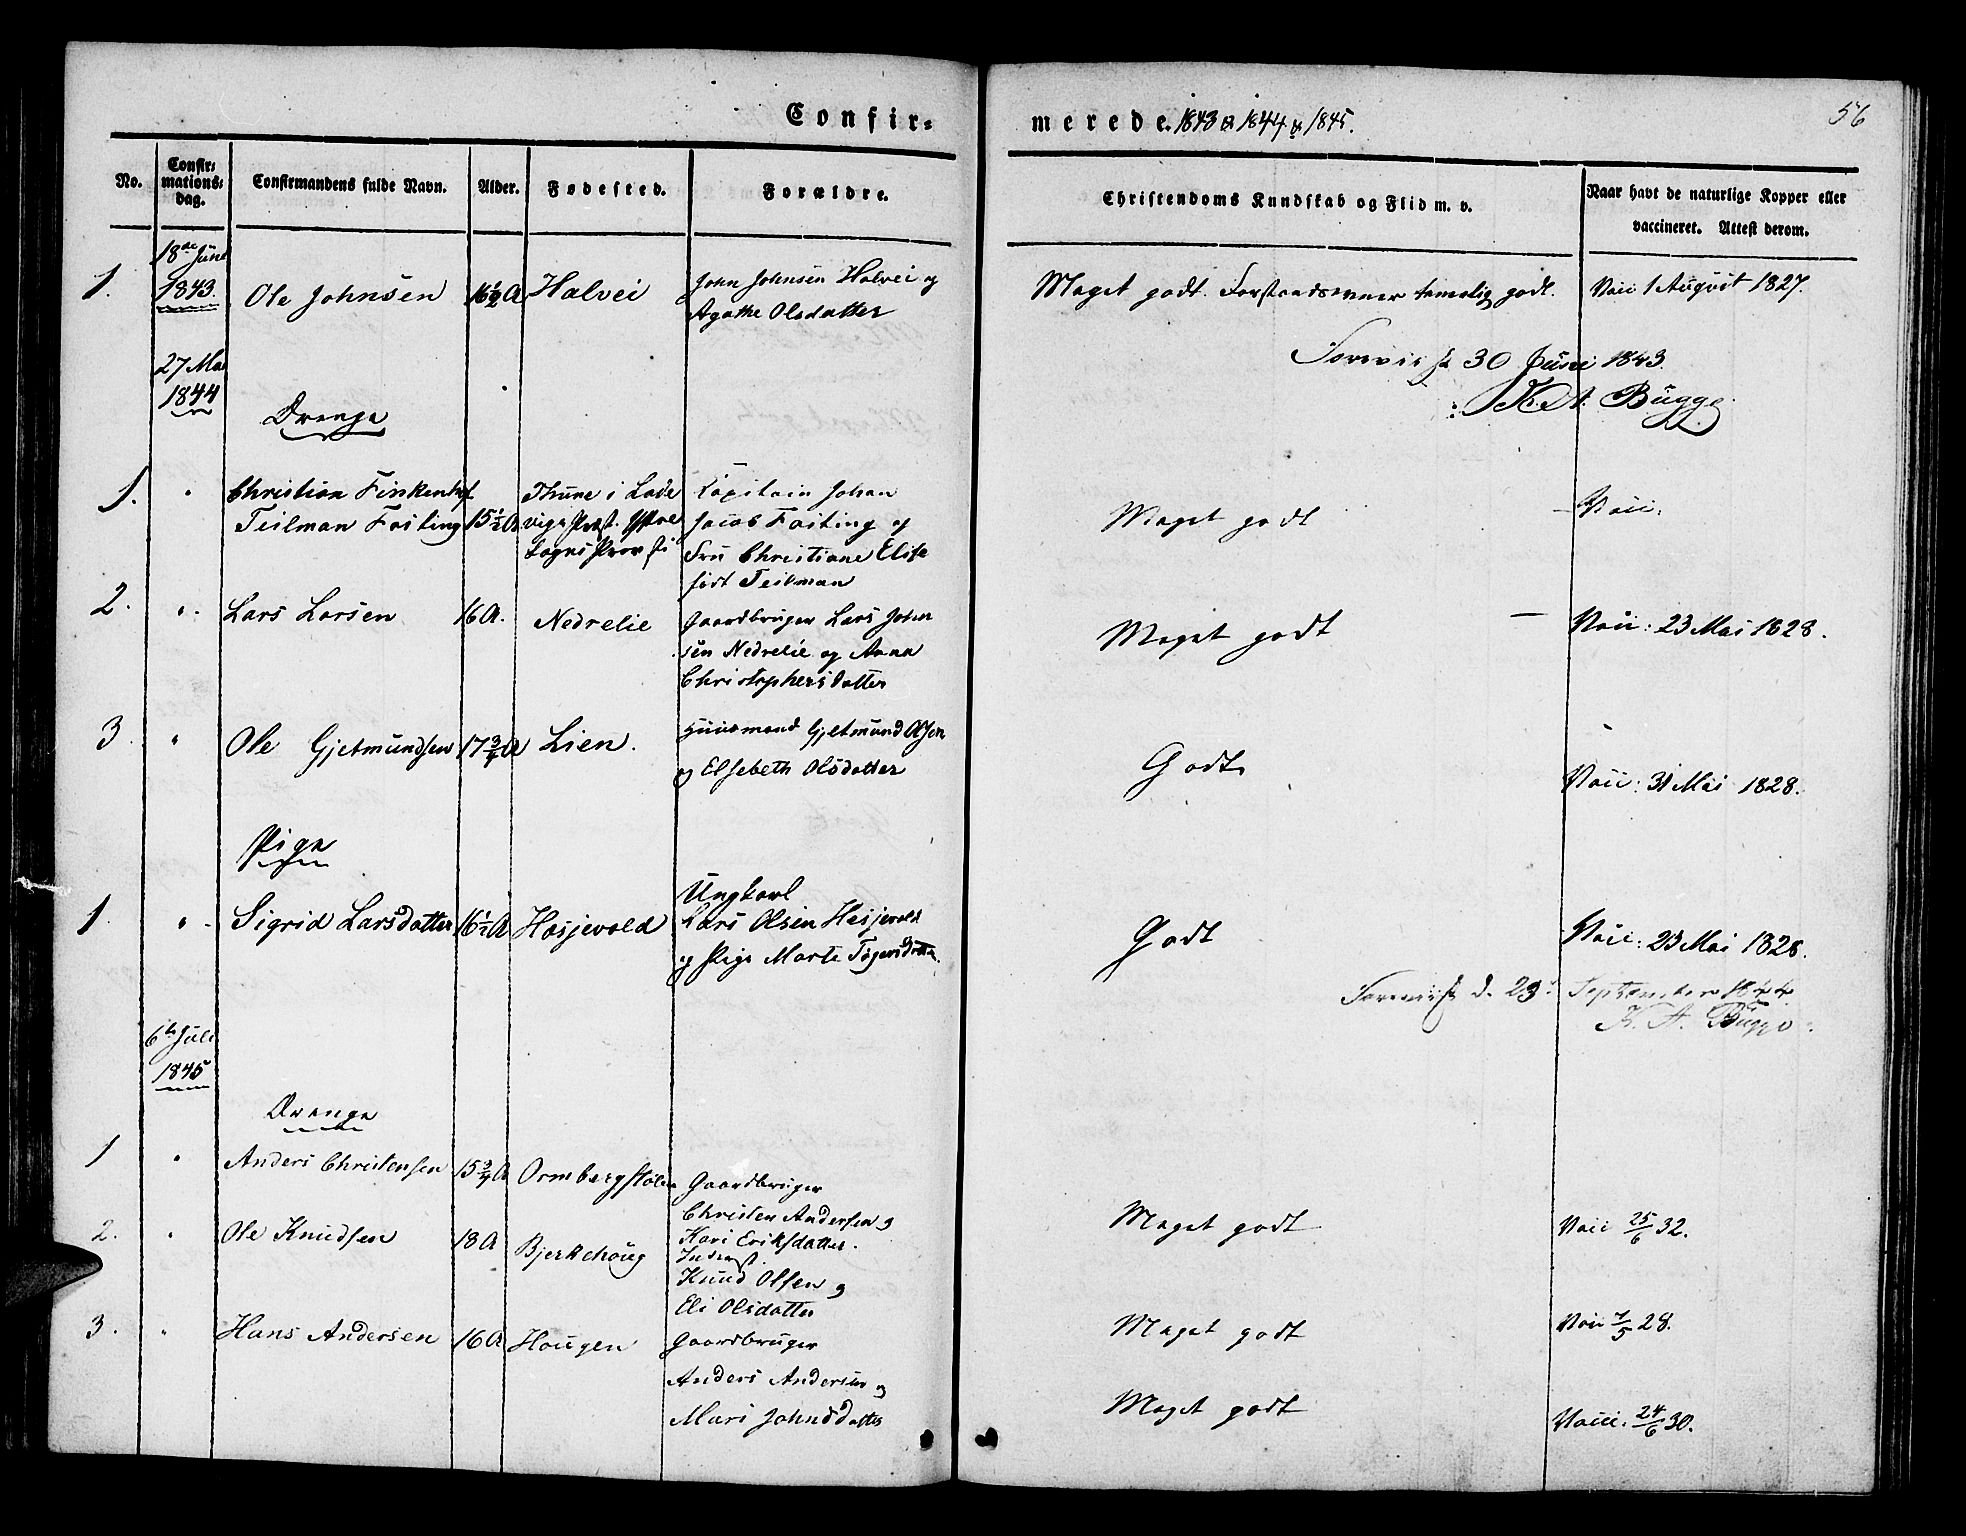 Confir-
merede. 1843 & 1844 & 1845.
56
No.
Confir-
mations-
dag.
Confirmandens fulde Navn.
Alder.
Fødested.
Forældre.
Christendoms Kundskab og Flid m. v.
Naar havt de naturlige Kopper eller
vaccineret. Attest derom.
18de Juni
1843.
1. Ole Johnsen 16½ A Halvei
John Johnsen Halvei og
Agathe Olsdatter
Meget godt. Forstandsevner temelig godt.
Vacc 1 August 1827.
Foreviist 30 Juni 1843.
K. A. Bugge
27 Mai
1844
Drenge
1. " Christian Finkenhof
Teilman Fasting 15½ A
Thune i
Sogns Provsti
Kapitain Johan
Jacob Fasting og
Fru Christiane Elise
født Teilman
Meget godt
Vacc:
2. " Lars Larsen 16 A. Nedrelie
Gaardbruger Lars John
sen Nedrelie og Anna
Christophersdatter
Meget godt
Vacc: 23 Mai 1828.
3. " Ole Gjetmundsen 17¾ A Lien.
Huusmand Gjetmund Olsen
og Elsebeth Olsdatter
Godt
Vacc: 31 Mai 1828.
Pige
1. " Sigrid Larsdatter 16½ A Hæsjevold
Ungkarl
Lars Olsen Hesjevold
og Pige Marte
Godt
Vacc: 23 Mai 1828.
Foreviist d. 23de September 1844
K. A. Bugge
6te Juli
1845
Drenge
1 " Anders Christensen 15¾ A Ormbergstølen
Gaardbruger
Christen Andersen og
Kari Eriksdatter.
Meget godt
Vacc 25/6 32.
2. " Ole Knudsen 18 A Bjerkehoug
Inderst
Knud Olsen og
Eli Olsdatter
Meget godt
Vacc 7/5 28.
3. " Hans Andersen 16 A Hougen
Gaardbruger
Anders Andersen og
Mari Johnsdatter
Meget godt
Vacc: 24/6 30.